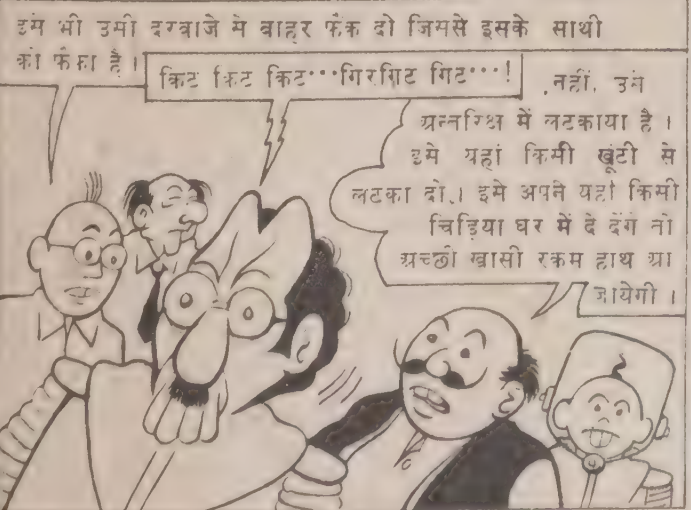 इसे भी उसी दरवाजे से बाहर फेंक दो जिससे इसके साथी
को फेंका है।
किट किट किट···गिरगिट गिट···!
नहीं, उसे
अन्तरिक्ष में लटकाया है।
इसे यहां किसी खूंटी से
लटका दो। इसे अपने यहां किसी
चिड़िया घर में दे देंगे तो
अच्छी खासी रकम हाथ आ
जायेगी।